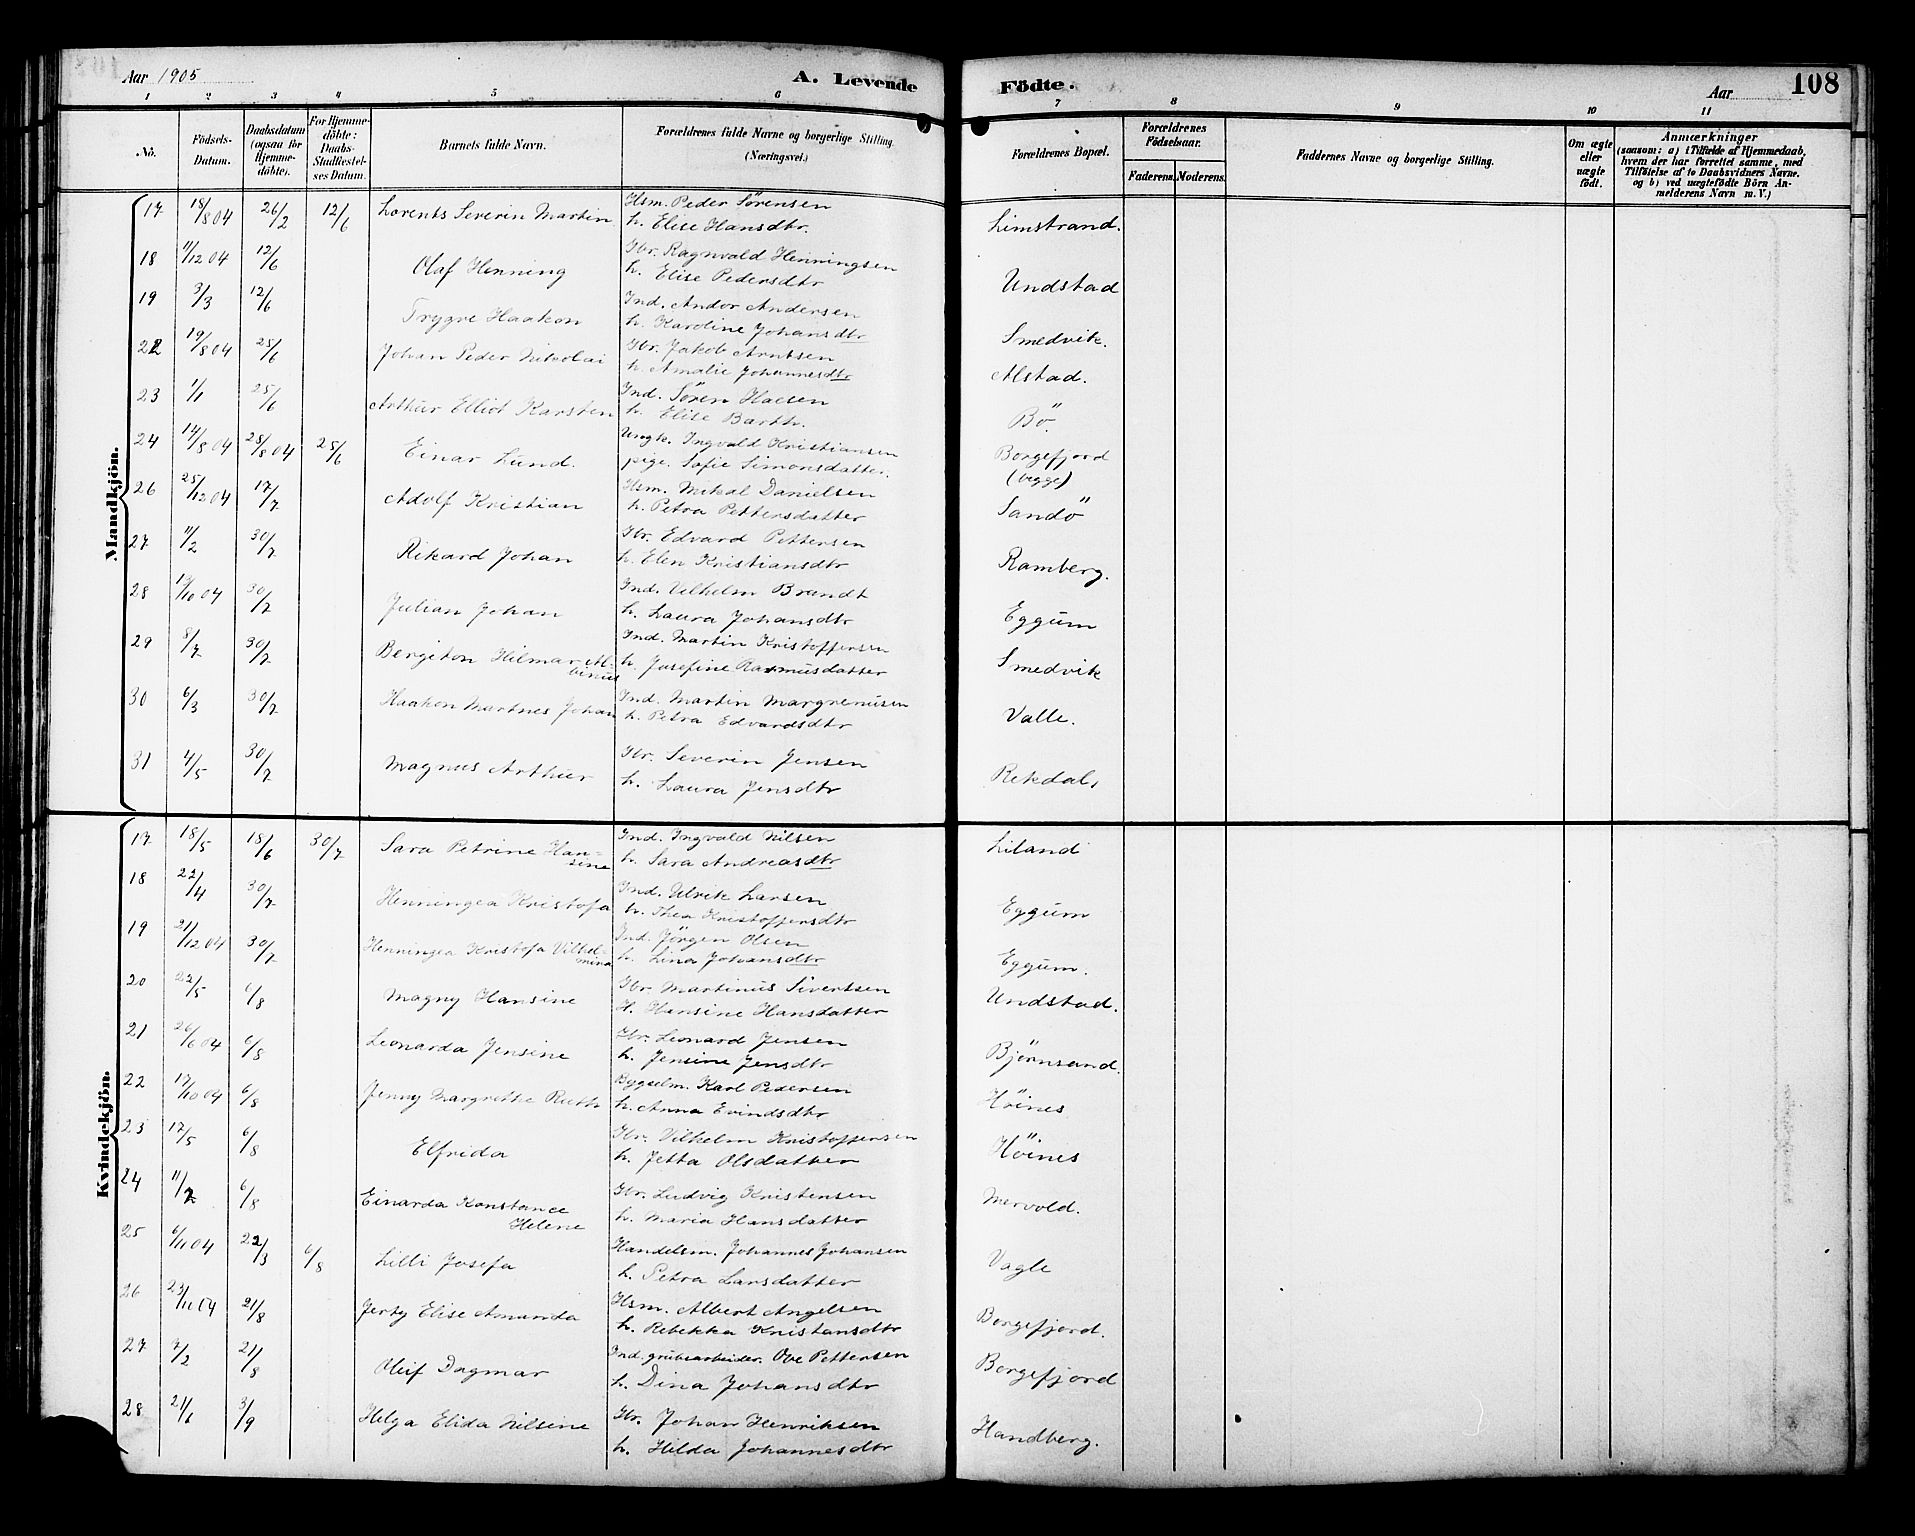 Aar 1905
A. Levende
Födte.
Aar
108
1 2 3 4 5 6 7 8 9 10 11
No.
Födsels-
Datum.
Daabsdatum
(ogsaa for
Hjemme-
döbte).
For Hjemme-
döbte:
Daabs-
Stadfæstel-
ses Datum.
Barnets fulde Navn.
Forældrenes fulde Navne og borgerlige Stilling.
(Næringsvei.)
Forældrenes Bopæl.
Forældrenes
Födselsaar.
Faderens. Moderens.
Faddernes Navne og borgerlige Stilling.
Om ægte
eller
uægte
födt.
Anmærkninger
(saasom: a) i Tilfælde af Hjemmedaab,
hvem der har forrettet samme, med
Tilföielse af to Daabsvidners Navne.
og b) ved uægtefödte Börn An-
melderens Navn m. V.)
Mandkjön.
17 18/8 04 26/2 12/6 Lorents Severin Martin Hsm. Peder Sörensen
h. Elise Hansdtr. Limstrand.
18 11/12 04 12/6 Olaf Henning Gbr. Ragnvald Henningsen
h. Elise Pedersdtr Undstad
19 3/3 12/6 Trygve Haakon Ind. Andor Andersen
h. Karoline Johansdtr Smedvik.
22 19/8 04 25/6 Johan Peder Nikolai Gbr. Jakob Arntsen
h. Amalie Johannesdtr Alstad.
23 1/1 25/6 Arthur Elliot Karsten Ind. Sören
h. Elise Barth. Bö.
24 14/8 04 28/8 04 25/6 Einar Lund. Ungk. Ingvald Kristiansen
pige. Sofie Simonsdatter. Borgefjord
(begge)
26 25/12 04 17/7 Adolf Kristian Hsm. Mikal Danielsen
h. Petra Pettersdatter Sandö
27 11/2 30/7 Rikard Johan Gbr. Edvard Pettersen
h. Elen Kristiansdtr Ramberg.
28 19/10 04 30/7 Julian Johan Ind. Vilhelm Brandt
h. Laura Johansdtr Eggum
29 8/7 30/7 Bergiton Hilmar Al-
binus Ind. Martin Kristoffersen
h. Josefine Rasmusdatter Smedvik
30 6/3 30/7 Haakon Martnes Johan Ind. Martin Margrenusen
h. Petra Edvardsdtr Valle.
31 4/5 30/7 Magnus Arthur Gbr. Severin Jensen
h. Laura Jensdtr Rekdal,
Kvindekjön.
17 18/5 18/6 30/7 Sara Petrine Han-
sine Ind. Ingvald Nilsen
h. Sara Andreasdtr Liland
18 22/4 30/7 Henningea Kristofa Ind. Ulrik Larsen
h. Thea Kristoffersdtr Eggum
19 21/12 04 30/7 Henningea Kristofa Vilhel-
mina Ind. Jörgen Olsen
h. Lina Johansdtr Eggum.
20 22/5 6/8 Magny Hansine Gbr. Martinus Sivertsen
H. Hansine Hansdatter Undstad.
21 26/6 04 6/8 Leonarda Jensine Gbr. Leonard Jensen
h. Jensine Jensdtr Björnsand.
22 17/10 04 6/8 Jenny Margrethe Ruth Bygselm. Karl Pedersen
h. Anna Evindsdtr Höines
23 17/5 6/8 Elfrida Gbr. Vilhelm Kristoffersen
h. Jetta Olsdatter Höines
24 11/2 6/8 Einarda Konstance
Helene Gbr. Ludvig Kristensen
h. Maria Hansdatter Mervold.
25 6/11 04 22/3 6/8 Lilli Josefa Handelsm. Johannes Johansen
h. Petra Larsdatter Vagle
26 23/11 04 21/8 Jerty Elise Amanda Hsm. Albert Angelsen
h. Rebekka Kristansdtr Borgefjord.
27 7/2 21/8 Dagmar Ind. grubearbeider. Ove Pettersen
h. Dina Johansdtr Borgefjord
28 21/6 3/9 Helga Elida Nilsine Gbr. Johan Henriksen
h. Hilda Johannesdtr Handberg.